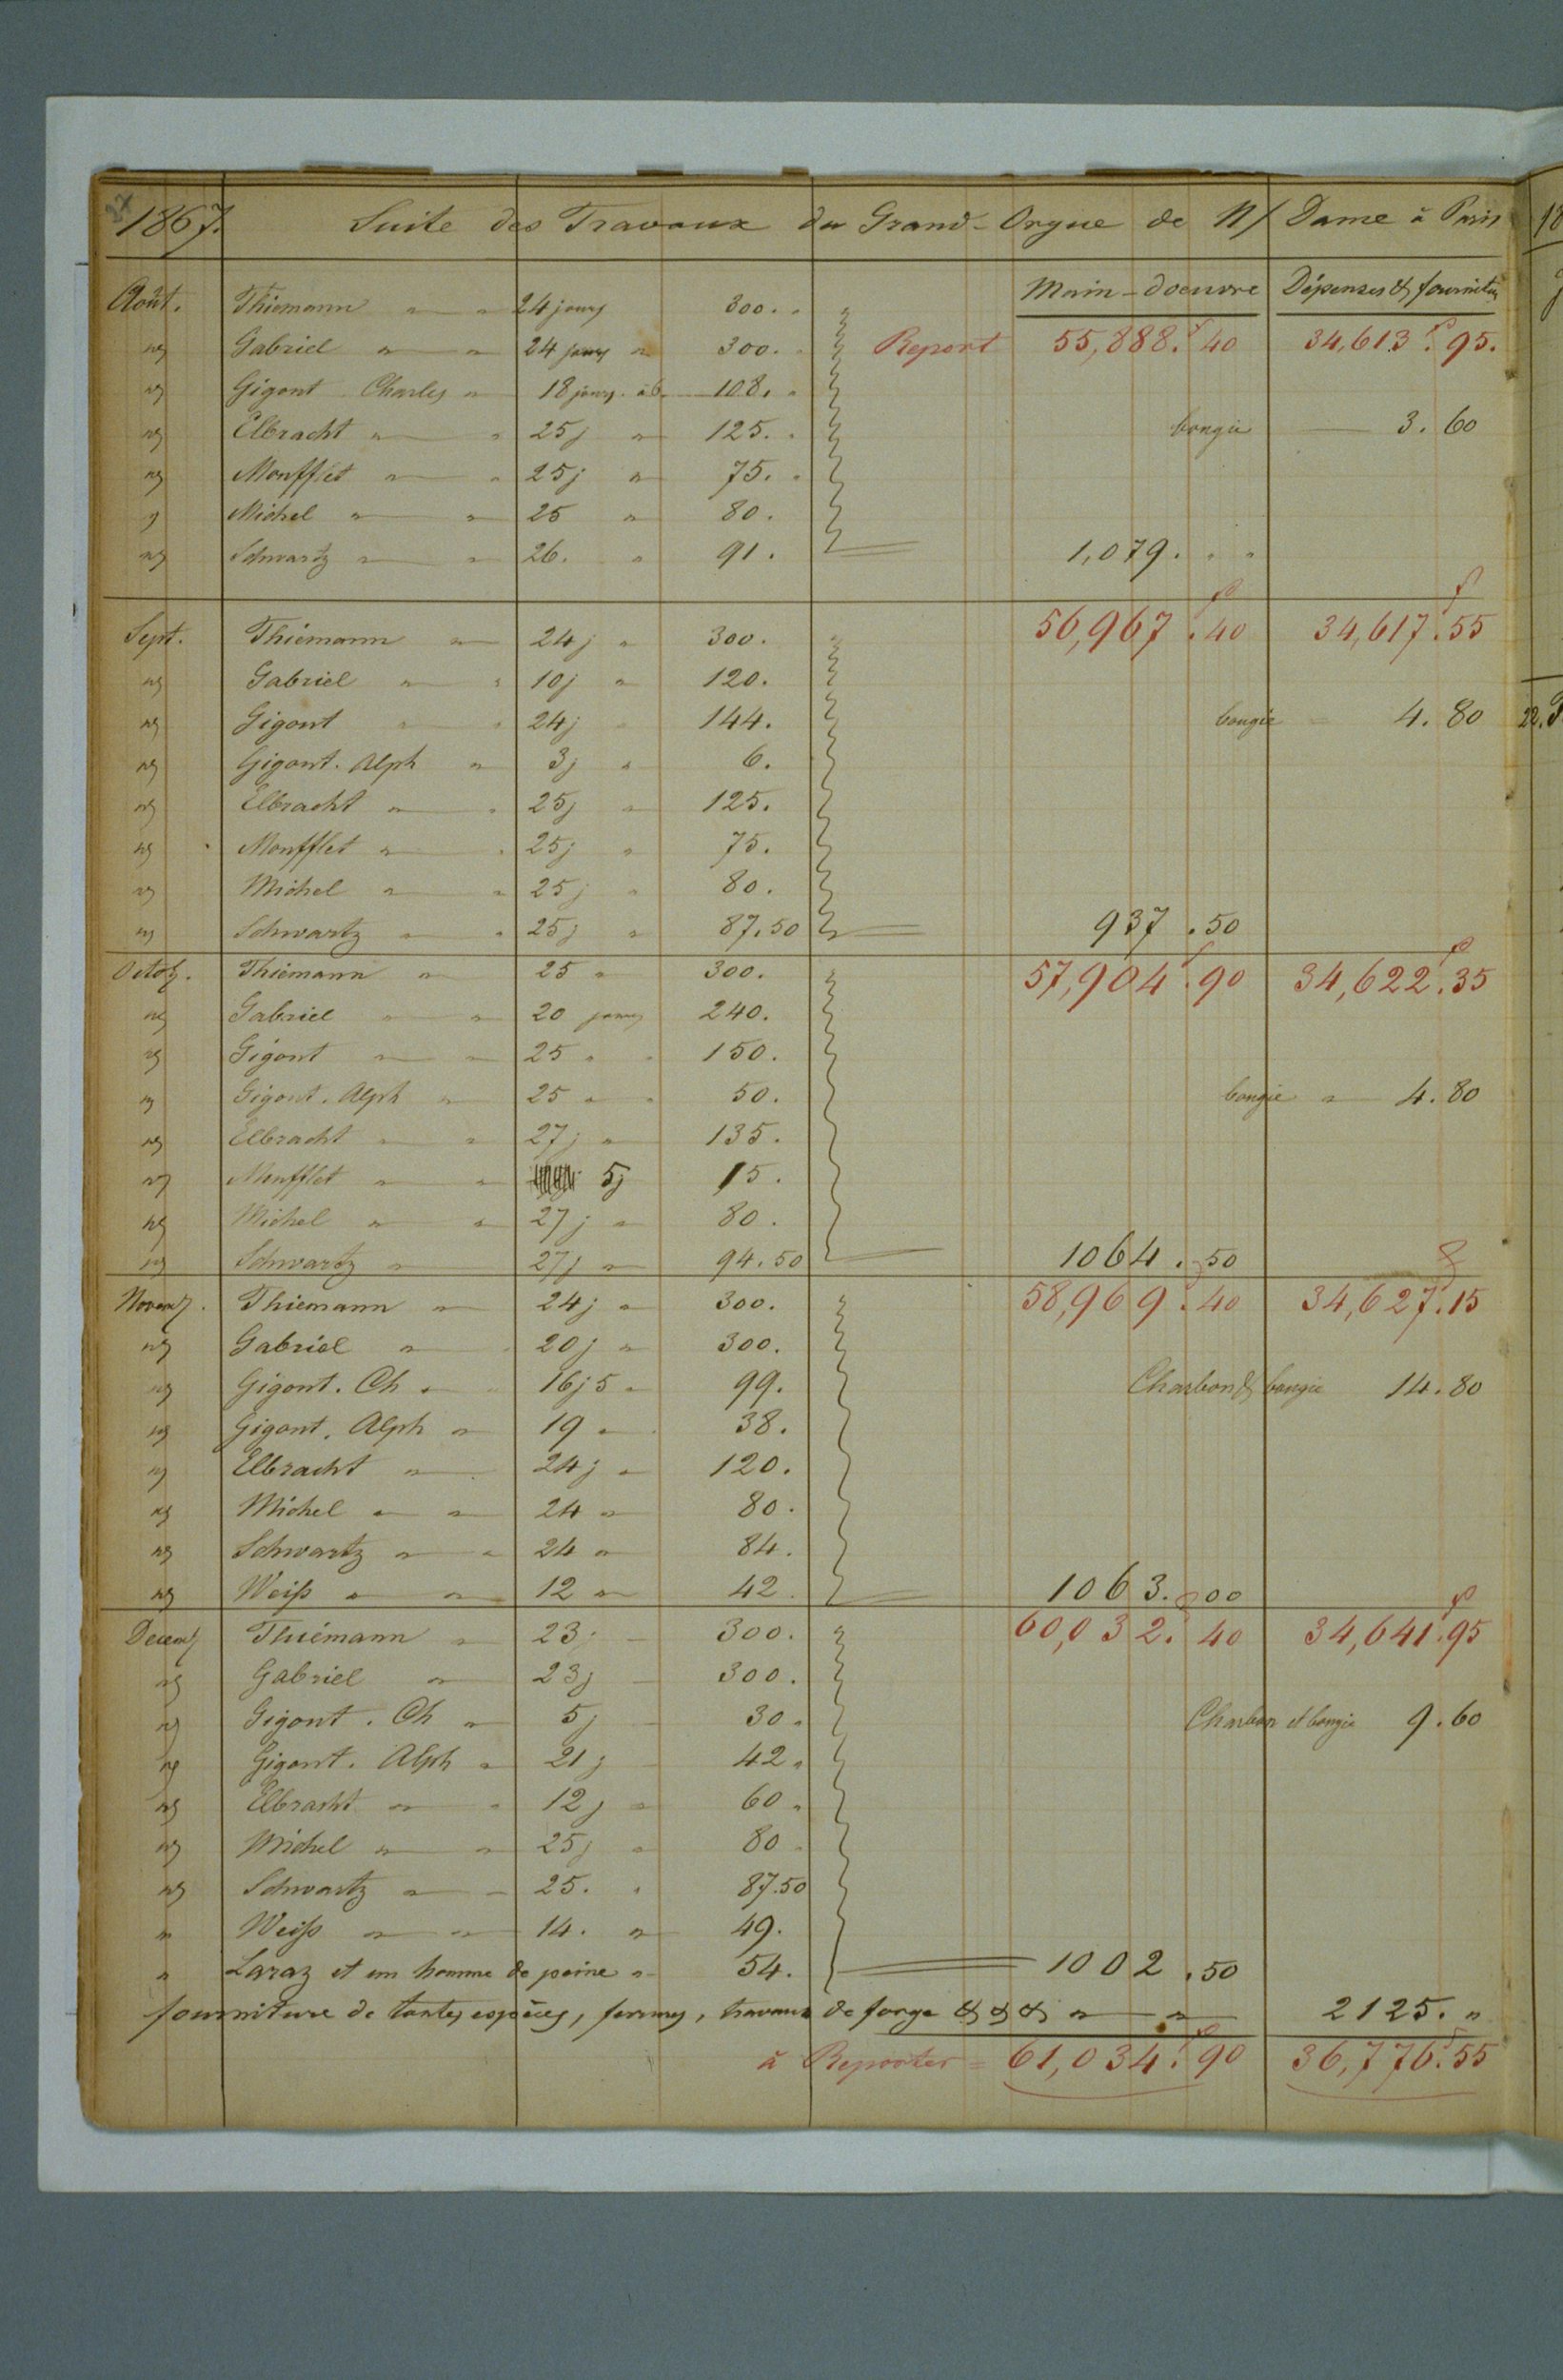 27
1867. Suite des Travaux du Grand-Orgue de N/ Dame à Paris
Main-doeuvre Dépenses & fournitur
Août. Thiemann " " 24 jours 300. "
" Gabriel " " 24 jours " 300. " Report 55,888.f 40 34,613.f 95.
" Gigout Charles " 18 jours. à 6. 108. "
" Elbracht " " 25j " 125. " bougie 3. 60
" Moufflet " " 25j " 75. "
" Michel " " 25 " 80.
" Schwartz " " 26. " 91. 1,079. " "
56,967.f 40 34,617.f 55
Sept. Thiemann " 24j " 300.
" Gabriel " " 10j " 120.
" Gigout " " 24j " 144. bougie 4. 80
" Gigout. Alph " 3j " 6.
" Elbracht " " 25j " 125.
" Moufflet " " 25j " 75.
" Michel " " 25j " 80.
" Schwartz " " 25j " 87.50 937.50
Octob. Thiemann " 25 " 300. 57,904.f 90 34,622.f 35
" Gabriel " " 20 jours 240.
" Gigout " " 25 " " 150.
" Gigout. Alph " 25 " " 50. bougie " 4. 80
" Elbracht " " 27j " 135.
" Moufflet " " 5j 15.
" Michel " " 27j " 80.
" Schwartz " 27j " 94.50 1064.50
Novemb. Thiemann " 24j " 300. 58,969.f 40 34,627.f 15
" Gabriel " " 20j " 300.
" Gigout. Ch " " 16j5 " 99. Charbon & bougie 14.80
" Gigout. Alph " 19 " 38.
" Elbracht " 24j " 120.
" Michel " " 24 " 80.
" Schwartz " " 24 " 84.
" Weiß " " 12 " 42. 1063.00
Decemb Thiémann " 23j 300. 60,032.f 40 34,641.f 95
" Gabriel " 23j 300.
" Gigout. Ch " 5j 30 " Charbon et bougie 9.60
" Gigout. Alph " 21j 42 "
" Elbracht " " 12j " 60 "
" Michel " " 25j " 80 "
" Schwartz " 25. " 87.50
" Weiß " " 14. " 49.
" Laraz et un homme de peine " 54. 1002.50
fourniture de toutes espèces, ferrures, travaux de forge & & & " " 2125. "
à Reporter = 61,034.f 90 36,776.f 55
18
22.